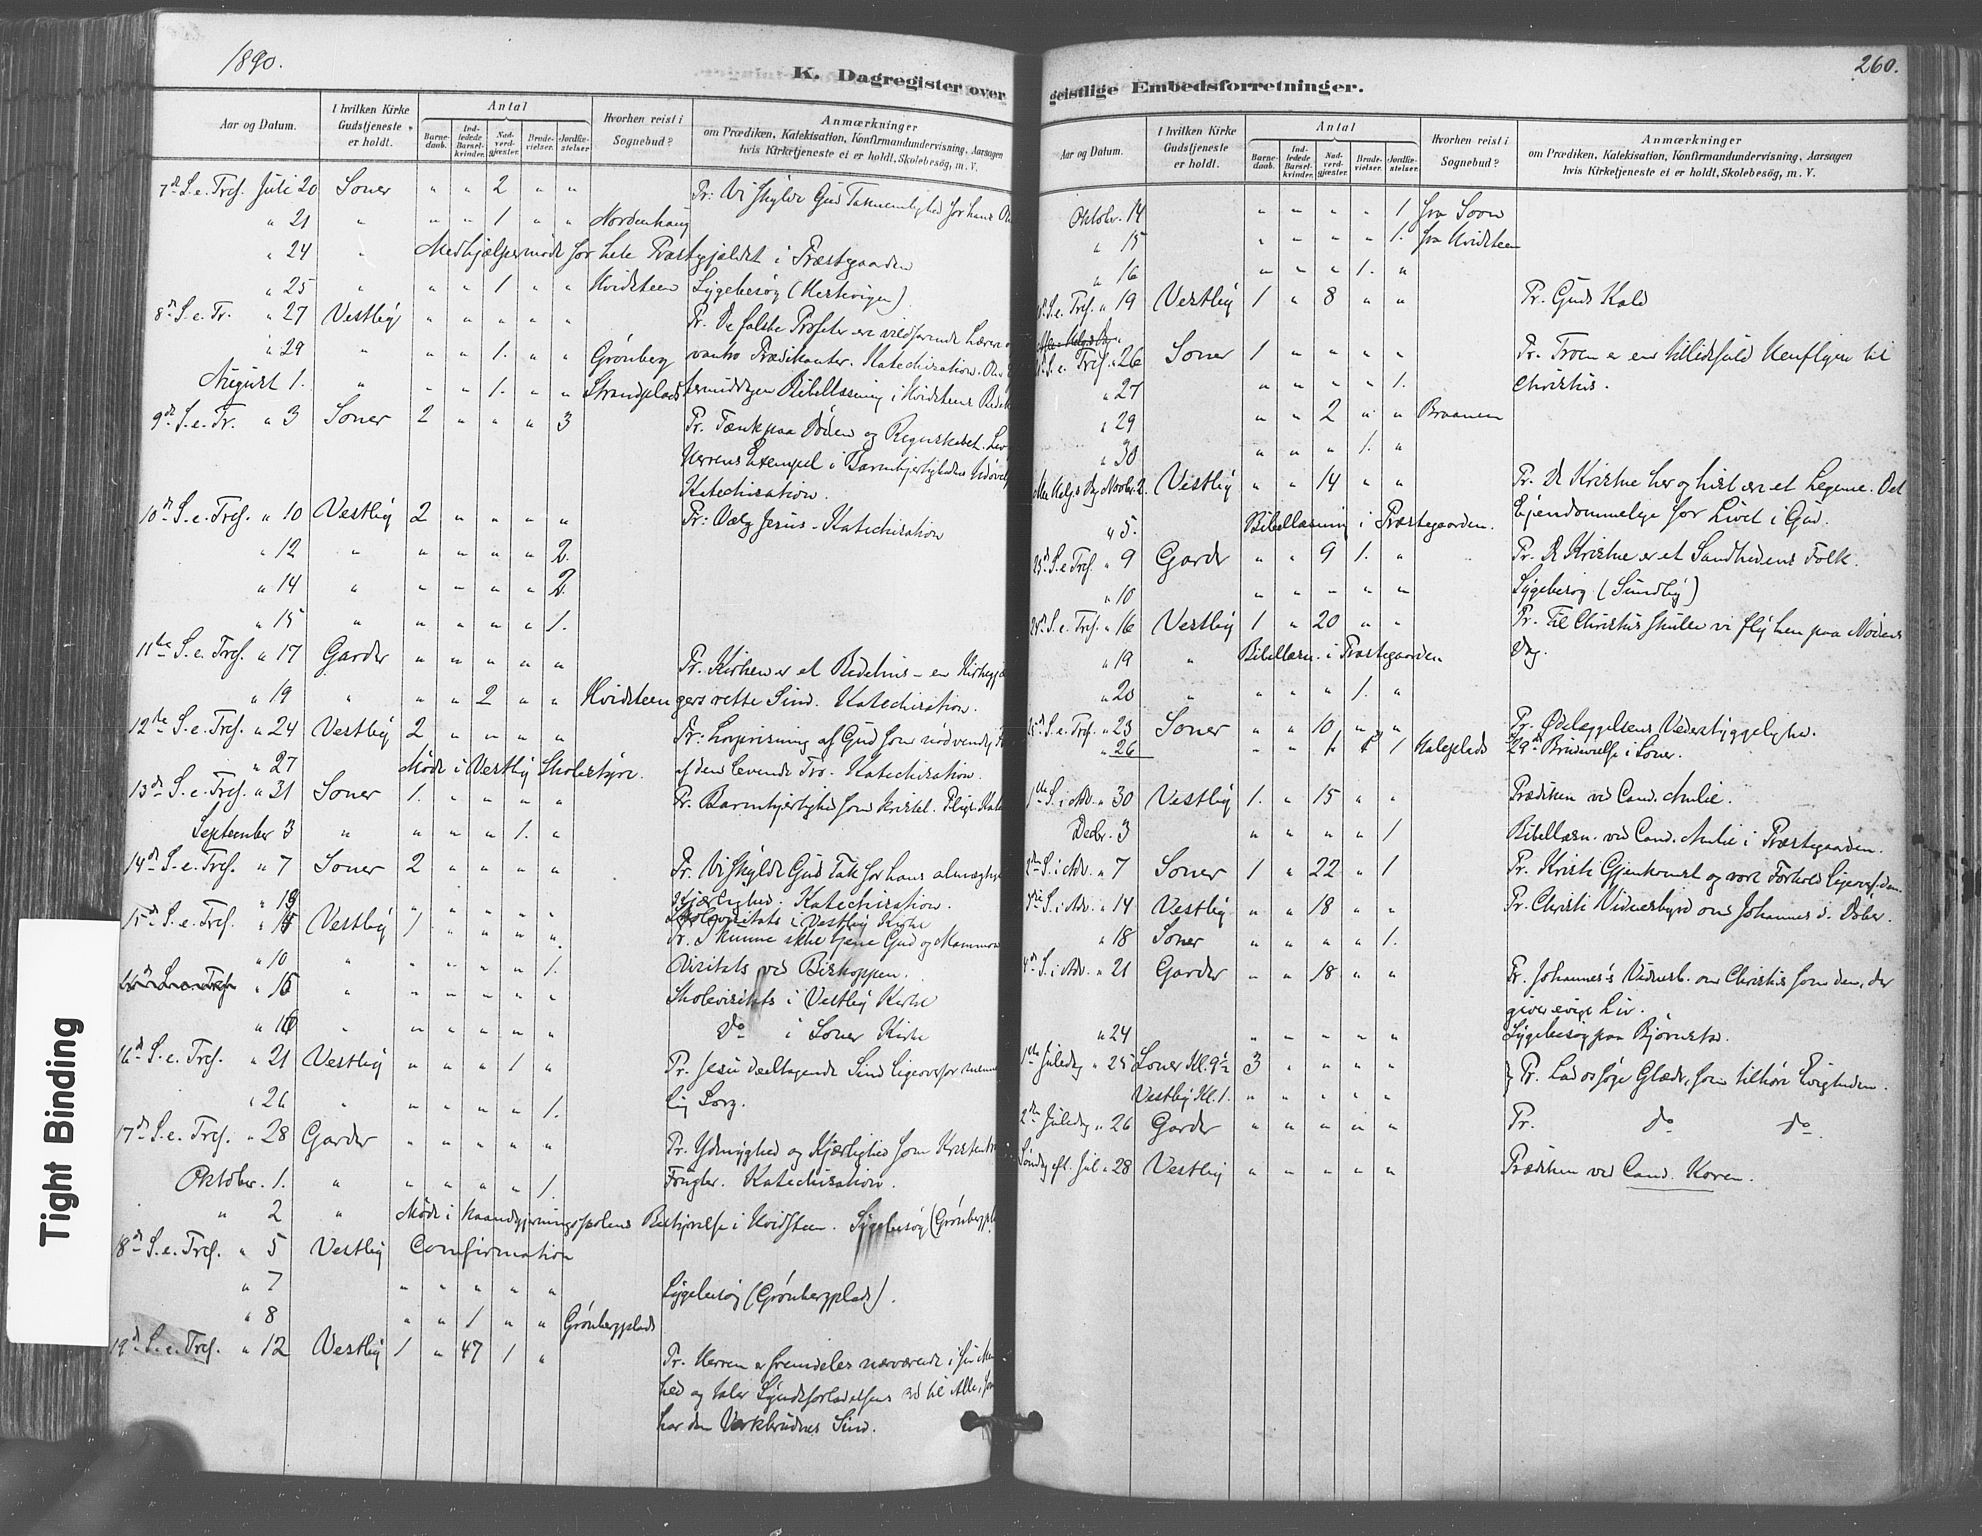 1890.
K. Dagregister over
Aar og Datum.
I hvilken Kirke Gudstjeneste er holdt.
Antal
Barnedaab.
Indledede Barselkvinder.
Nadverdgjæster.
Brudevielser.
Jordfæstelser
Hvorhen reist i Sognebud?
Anmærkninger
om Prædiken, Katekisation, Konfirmandundervisning, Aarsagen
hvis Kirketjeneste ei er holdt, Skolebesøg, m. V.
7d S. e. Tref. Juli 20 Soner " " 2 " " Pr: Vi skylde Gud Taknemlighed for hans
" 21 " " " 1. " " Nordenhaug
" 24 " Medhjælpermøde for hele Præstegjældet i Præstegaarden
" 25 " " " 1 " " Hvidsteen Sygebesøg
8d S. e. Tr. " 27 Vestby " " " " " Pr. De falske Profeter ere vildfarende Lærere
" 29 " " " 1. " " Grønberg vantro Prædikanter. Katechisation.
August 1. " " " 1. " " Strandplads termiddagen Bibellæsning i Hvidsteens
9de S. e. Tr. " 3 Soner 2 " " " 3 Pr. Tænk paa Døden og Regnskabet.
Herrens Exempel i Barmhjertigheds
Katechisation.
10d S. e. Tref. " 10 Vestby 2 " " " " Pr: Vælg Jesus - Katechisation
" 12 " " " " " 2.
" 14 " " " " " 2.
" 15 " " " " " 1.
11te S. e. Tref. " 17 Garder " " " " " Pr. Kirken er et Bedehus - en
" 19 " " " 2 " " Hvidsteen gers rette Sind. Katechisation.
12te S. e. Tref. " 24 Vestby 2 " " " " Pr: af Gud som nødvendig
" 27 Møde i Vestby Skolestyre. af den levende Tro. Katechisation.
13de S. e. Tref. " 31 Soner 1. " " " " Pr. Barmhjertighed som kristel. Pligt.
September 3 " " " " 1. "
14d S. e. Tref. " 7 Soner 2 " " " " Pr. Vi skylde Gud Tak for hans almægtige
Kjærlighed. Katechisation.
Skolevisitats i Vestby Kirke
15d S. e. Tref. " Vestby 1 " " " " Pr. I kunne ikke tjene Gud og Mammon
" 10 " " " " " 1. Visitats ved Biskoppen.
" 15 " " " " " " Skolevisitats i Vestby Kirke
" 16 " " " " " " Do i Soner Kirke
16d S. e. Tref. " 21 Vestby " " " 1 " Pr. Jesu deeltagende Sind ligeoverfor
" 26 " " " " " 1. lig Sorg.
17d S. e. Tref. " 28 Garder " " " " " Pr. Ydmyghed og Kjærlighed som
Oktober. 1. " " " " " 1. Frugter. Katechisation.
" 2 " Møde i Haandgjerningsskolens Bestyrelse i Hvidsteen. Sygebesøg (Grønbergpl
18d S. e. Tref. " 5 Vestby Confirmation
" 7 " " " " " Sygebesøg (Grønbergplads).
" 8 " " 1 " " Grønbergplads
19d S. e. Tref. " 12 Vestby 1 " 47 1 " Pr. Herren er fremdeles nærværende i sin
hed og taler Syndsforladelsens Ord til Alle, som
har den Værkbrudnes Sind.
Tight Binding
260.
geistlige Embedsforretninger.
Aar og Datum.
I hvilken Kirke Gudstjeneste er holdt.
Antal
Barnedaab.
Indledede Barselkvinder.
Nadverdgjæster.
Brudevielser.
Jordfæstelser.
Hvorhen reist i Sognebud?
Anmærkninger
om Prædiken, Katekisation, Konfirmandundervisning, Aarsagen
hvis Kirketjeneste ei er holdt, Skolebesøg, m. V.
Oktobr. 14 " " " " 1 fra Soon
" 15 " " " " 1. fra Hvidsteen
" 16 " " " 1. "
S. e. Tref. " 19 Vestby 1 " 8 " " Pr. Guds Kald
S. e. Tref. " 26 Soner 1 " " " " Pr. Troen er en tillidsfuld Henflyen til
" 27 " " " " 1. Christus.
" 29 " " 2 " " Braanen
" 30 " " " 1. "
Alle Helgs Dag Novbr. 2. Vestby " " 14 " " Pr. De Kristne her og hist ere et Legeme. Det
" 5. Bibellæsning i Præstegaarden. Ejendommelige for Livet i Gud.
23d S. e. Tref. " 9 Garder " " 9 1. " Pr. De Kristne er et Sandhedens Folk.
" 10 " " " " " Sygebesøg (Sundby)
24d S. e. Tref. " 16 Vestby 1 " 20 " " Pr. Til Christus skulle vi fly hen paa Nødens
" 19 " Bibellæsn. i Præstegaarden Dag.
" 20 " " " " 1. "
25d S. e. Tref. " 23 Soner " " 10 " " Pr. Ødelæggelsens Vederstyggelighed.
" 26 " " 1 1 Huleplads 29d Brudevielse i Soner.
1ste S. i Adv. " 30 Vestby 1. " 15 " " Prædiken ved Cand. Aulie.
Decbr. 3 " " " " 1 Bibellæsn. ved Cand. Aulie i Præstegaarden.
2den S. i Adv. " 7 Soner 1 " 22 " 1 Pr. Kristi Gjenkomst og vort Forhold ligeovf. den.
3die S. i Adv. " 14 Vestby " " 18 " " Pr. Christi Vidnesbyrd om Johannes d. Døber.
" 18 Soner " " " " 1.
4d S. i Adv. " 21 Garder " " 18 " " Pr. Johannes's Vidnesb. om Christus som den, der
giver evige Liv.
" 24 " " " " " Sygebesøg paa Bjørnstad.
1ste Juledag " 25 Soner Kl. 9½ 3 " " " " } Pr. Lad os søge Glæde, som tilhøre Evigheden.
Vestby Kl. 1. " " " " "
2den Juledag " 26 Garder " " " " " Pr. do do.
Søndg eft. Jul " 28 Vestby " " " " " Prædiken ved Cand. Koren.